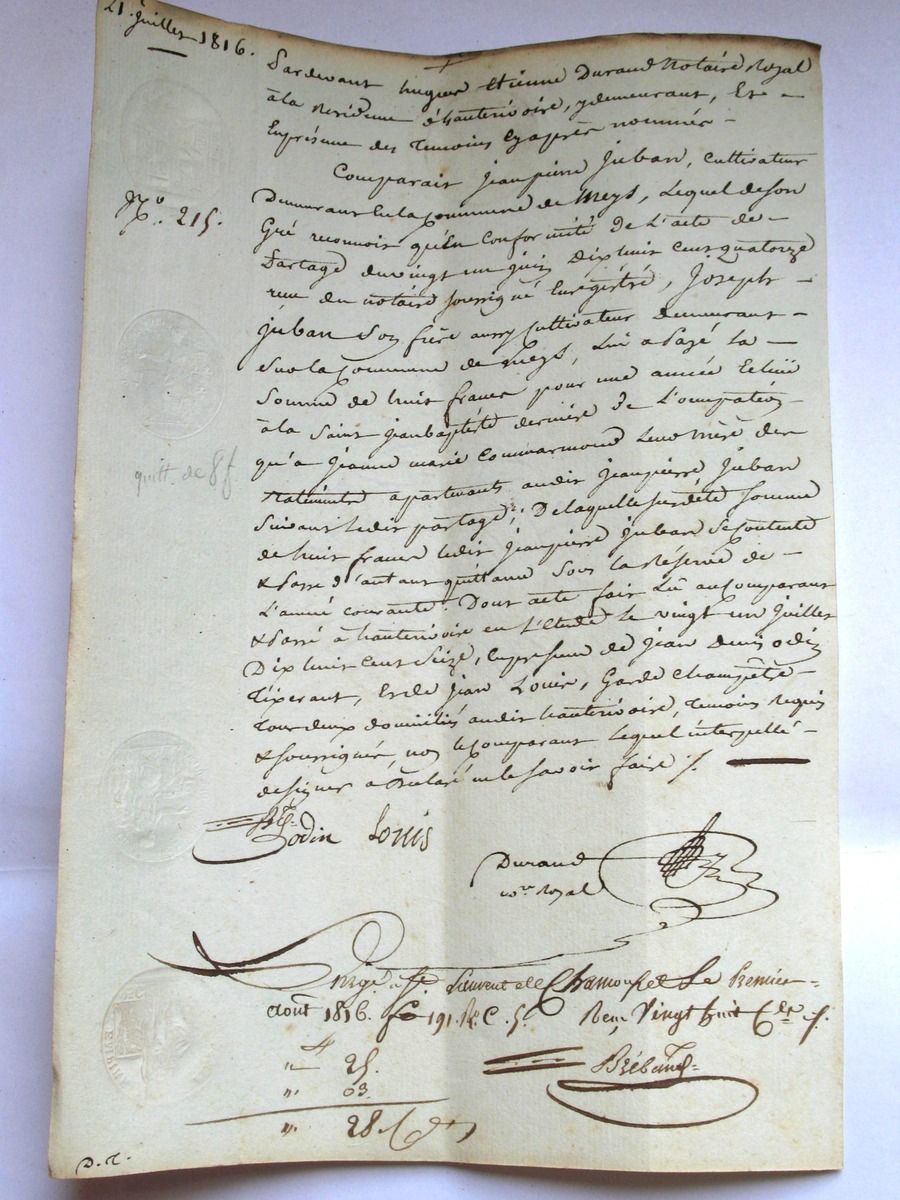 21 juillet 1816.
Pardevant hugue Etienne Durand Notaire Royal
à la Residence d'hauterivoire, y demeurant, Et
En présence des Temoins cy après nommés
Comparait jeanpierre juban, cultivateur
N.º 215.
Demeurant En la Commune de Meys, Lequel de son
Gré reconnoit qu'En conformité de L'acte de
Partage du vingt un juin Dix huit cent quatorze
reçu du notaire soussigné Enrégistré, Joseph
juban son frère aussy cultivateur demeurant
Sur la Commune de meys, Lui a Payé La
Somme de huit francs pour une année Echüe
à la Saint jeanbaptiste dernière de L'occupation
quitt. de 8 f
qu'a jeanne marie Commarmond Leur Mère des
apartenants audit jeanpierre juban
Suivant ledit partage; De laquelle susdéte somme
de huit francs ledit jeanpierre juban se contente
& Passe d'autant quittance Sous la Réserve de
L'année courante. Dont acte fait Lû au Comparant
& Passé à hauterivoire en L'Etude le vingt un juillet
Dix huit cent Seize, En présence de jean Denis odin
Tixerant, Et de jean Louis, Garde Champêtre
Tous deux domiciliés audit hauterivoire, Temoins Requis
& soussignés, non le Comparant lequel interpellé
de signer a déclaré ne le savoir faire ./.
odin Louis
Durand
Nre. Royal
Enrgé. à St. Laurent de Chamousset Le Premier
Aout 1816. fo 191. Ro C. 5. Reçu Vingt huit Ces
" 25.
" 03.
" 28.
Brébant
D. R.